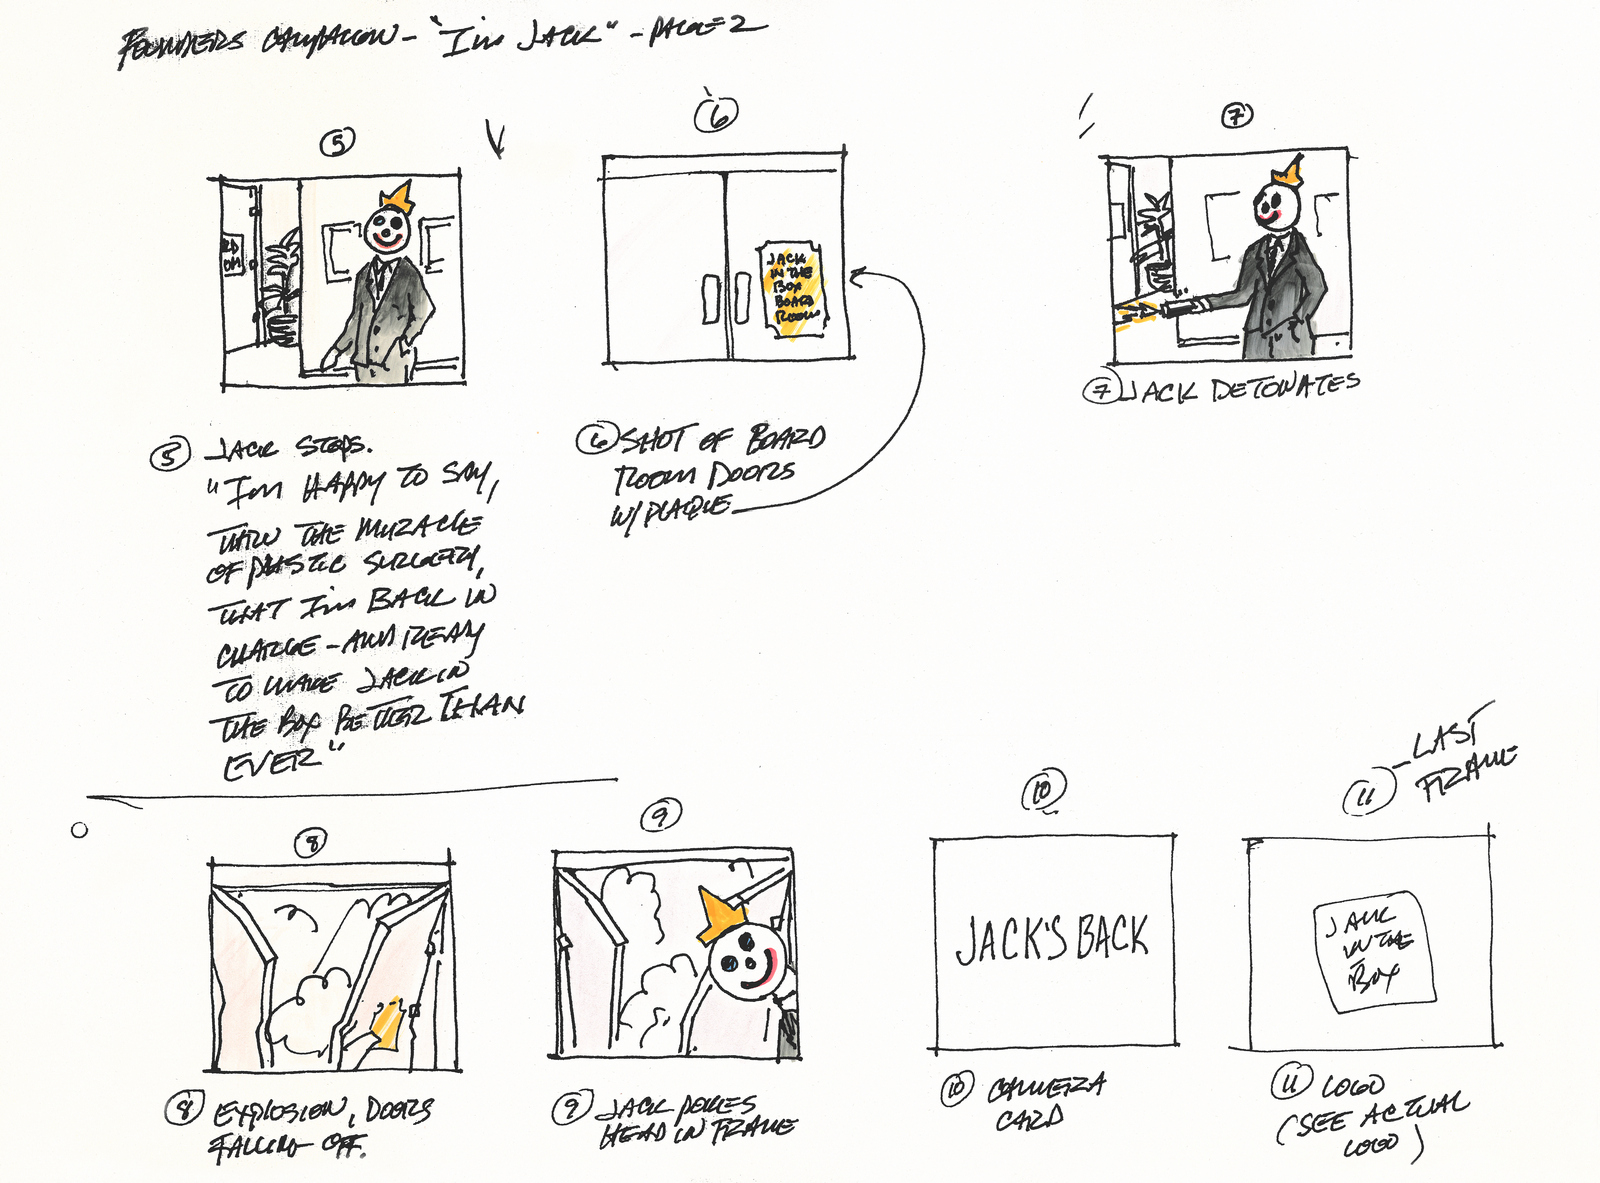 FOUNDERS CAMPAIGN - "I'm JACK" - PAGE 2
5
6
7
RD
OM
JACK
IN THE
BOX
BOARD
ROOM
7 JACK DETONATES
5 JACK STOPS.
"I'm HAPPY TO SAY,
THRU THE MIRACLE
OF PLASTIC SURGERY,
THAT I'm BACK IN
CHARGE - AND READY
TO MAKE JACK IN
THE BOX BETTER THAN
EVER"
6 SHOT OF BOARD
ROOM DOORS
W/ PLAQUE
8
9
10
11 - LAST
FRAME
JACK'S BACK
JACK
IN THE
BOX
8 EXPLOSION, DOORS
FALLING OFF.
9 JACK POKES
HEAD IN FRAME
10 CAMERA
CARD
11 LOGO
(SEE ACTUAL
LOGO)